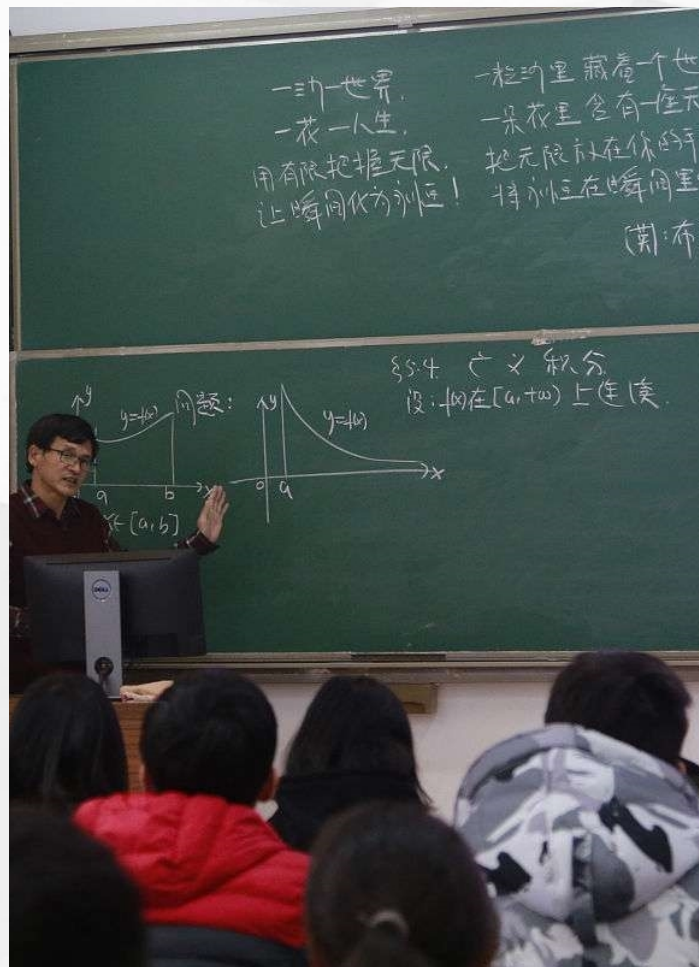 一沙一世界.
一花一人生.
用有限把握无限.
让瞬间化为永恒!
一粒沙里藏着一个世
一朵花里含有一座天
把无限放在你的手
将永恒在瞬间里
[英]:布
§5.4 广义积分
设:f(x)在[a,+∞)上连续.
y
y=f(x)
a
b
x
x∈[a,b]
问题:
y
y=f(x)
0
a
x
DELL